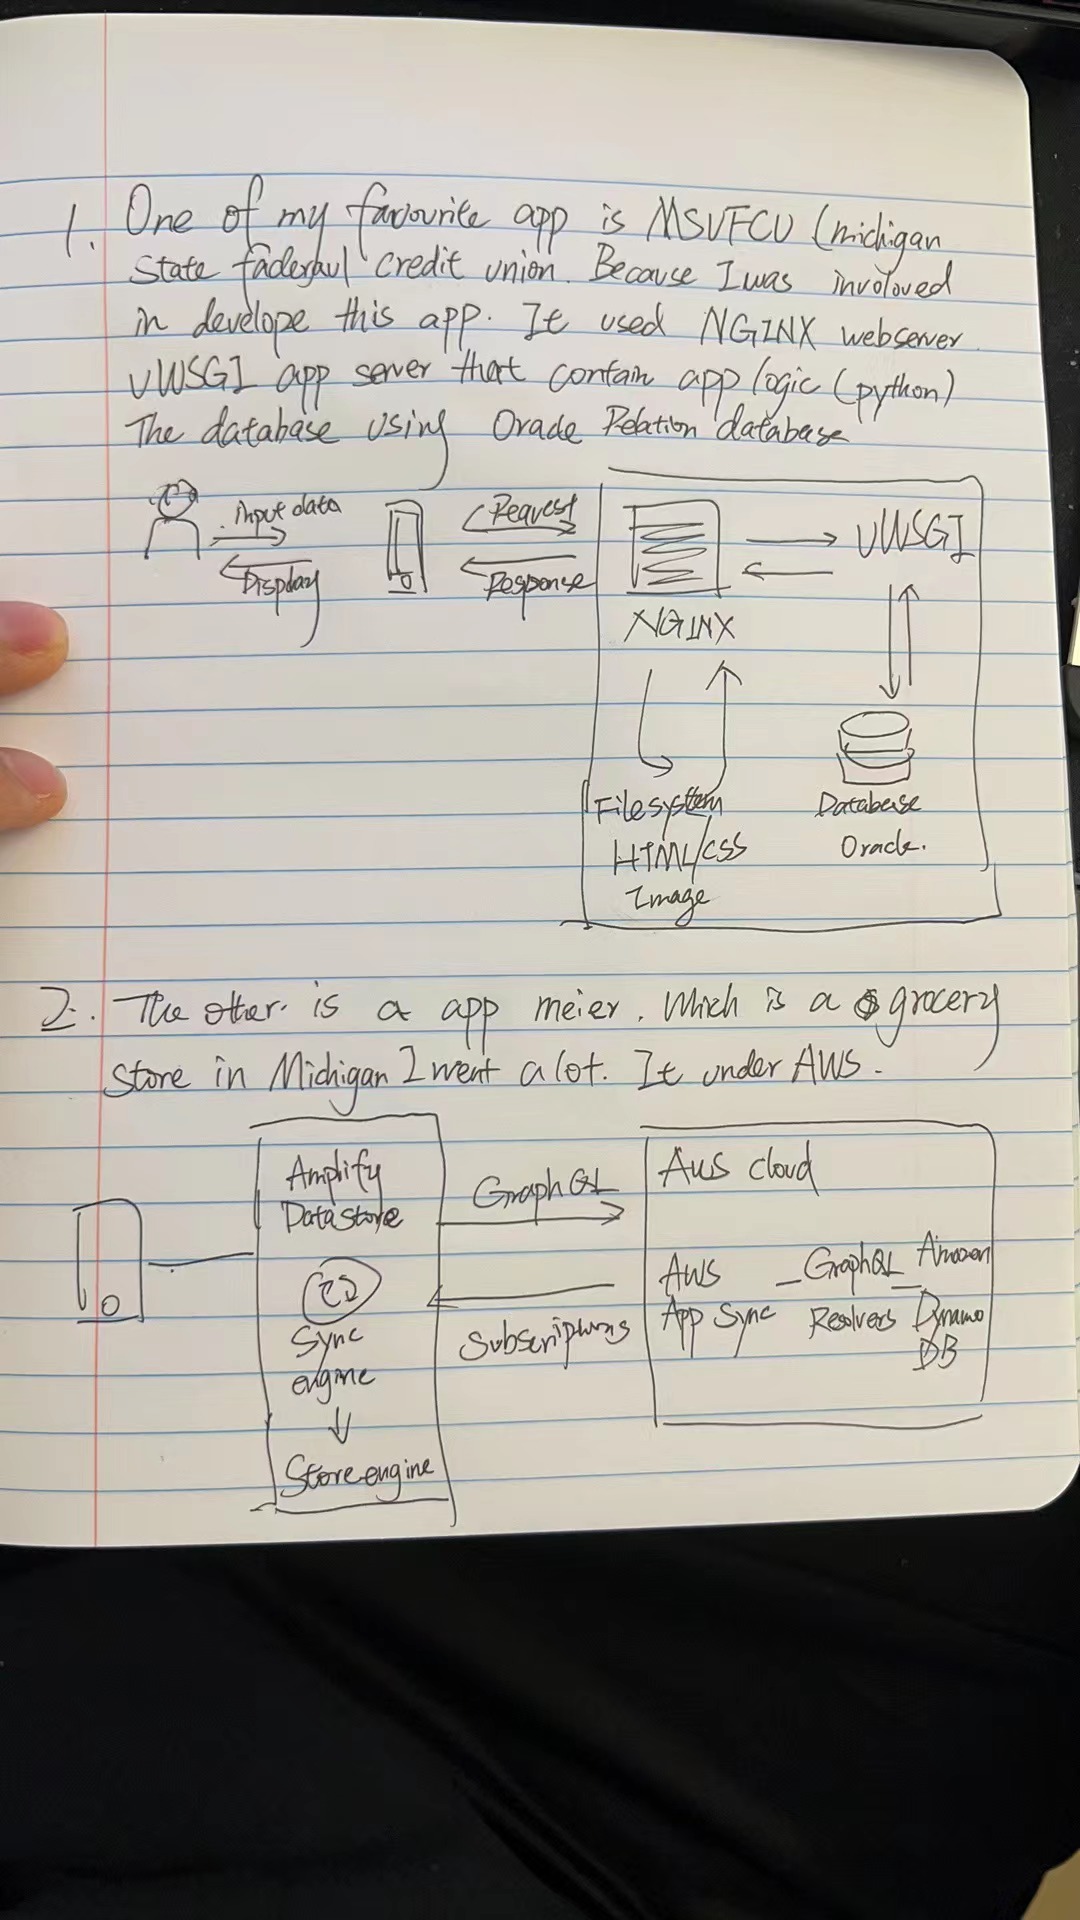 1. One of my favourite app is MSUFCU (michigan
State faderaul credit union. Because I was involoved
in develope this app. It used NGINX webserver.
UWSGI app server that contain app logic (python)
The database using Oracle Relation database
input data
Display
Request
Response
NGINX
UWSGI
Filesystem
HTML/CSS
Image
Database
Oracle.
2. The other. is a app meier. Which is a grocery
store in Michigan I went a lot. It under AWS.
Amplify
Datastore
Sync
engine
Store engine
GraphQL
Subscriptions
AWS cloud
AWS
App Sync
GraphQL
Resolvers
Amazon
Dynamo
DB